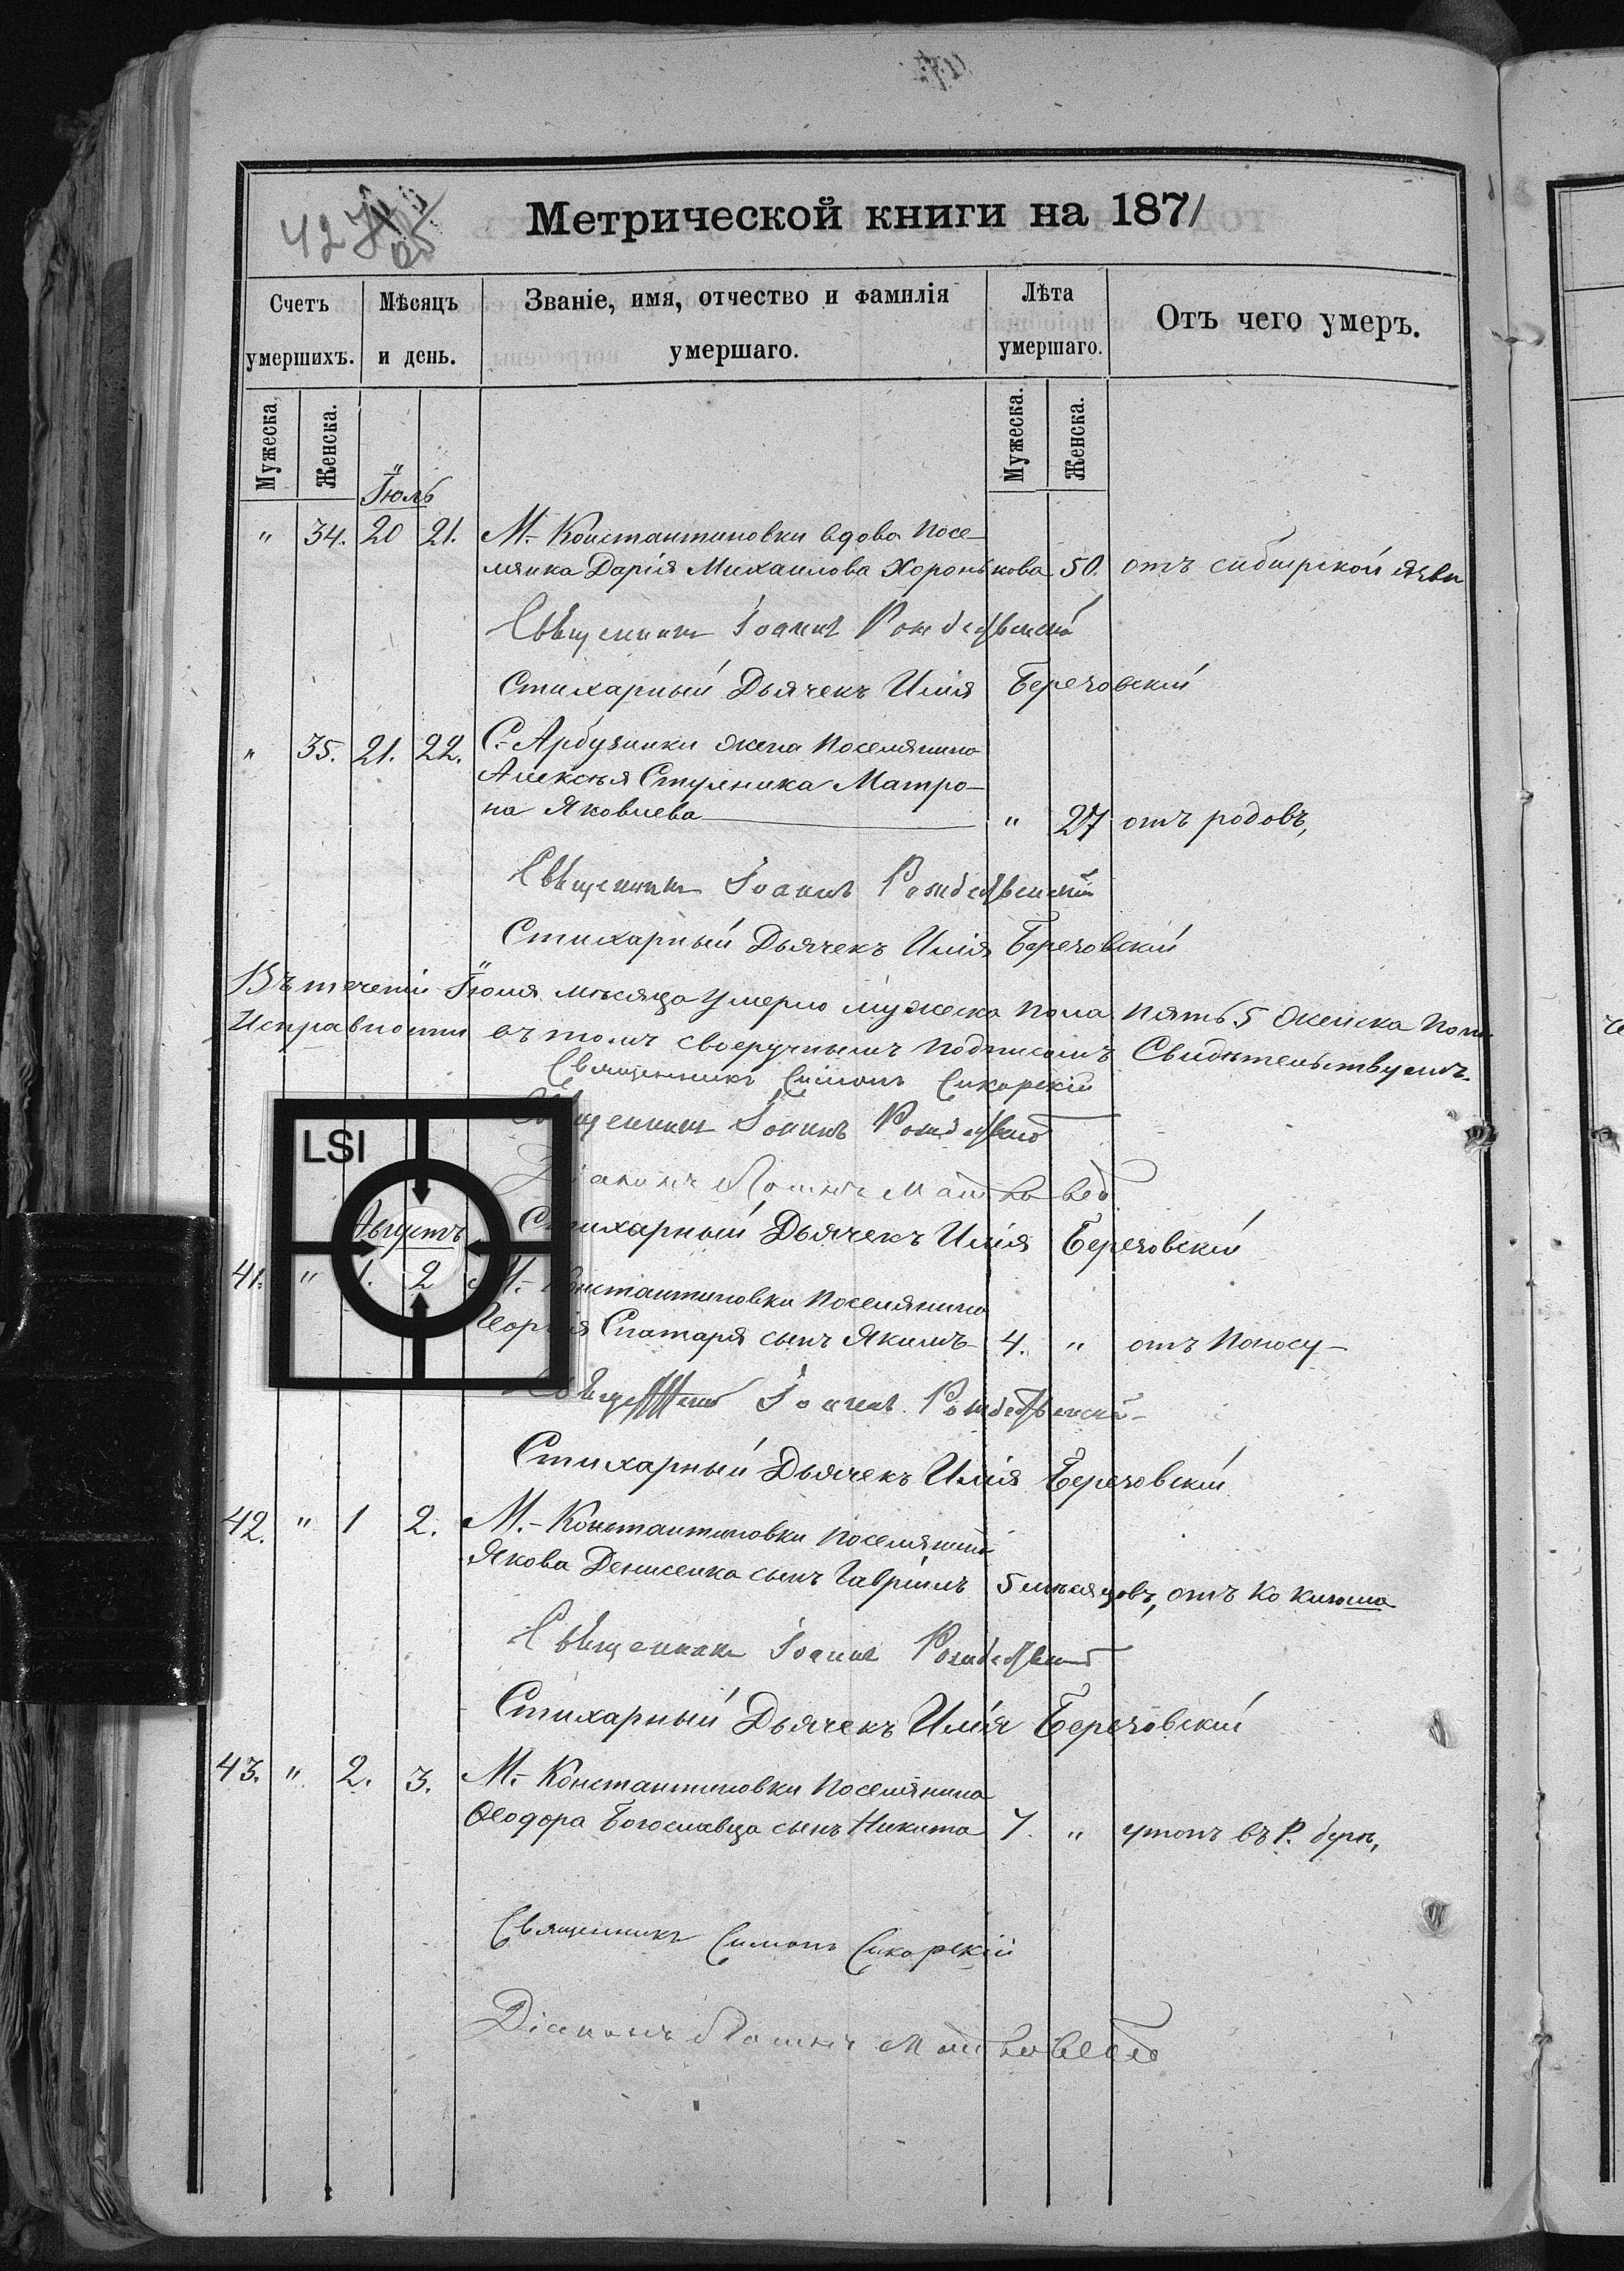 427
Метрической книги на 1871
Счетъ умершихъ.
Мѣсяцъ и день.
Званіе, имя, отчество и фамилія умершаго.
Лѣта умершаго.
Отъ чего умеръ.
Мужеска.
Женска.
Мужеска.
Женска.
Іюль
" 34. 20 21. М.- Константиновки вдова посе-
лянка Дарія Михаилова Хоронькова 50. отъ сибирской язвы
Священникъ Іоаннъ Рождественскій
Стихарный Дьячекъ Илія Березовскій
" 35. 21. 22. С.- Арбузинки жена поселянина
Алексѣя Стульника Матро-
на Яковлева " 27 отъ родовъ,
Священникъ Іоаннъ Рождественскій
Стихарный Дьячекъ Илія Березовскій
Въ теченіи Іюля мѣсяца умерло мужеска пола пять 5 женска пола
Исправности въ томъ своеручнымъ подписомъ Свидѣтельствуемъ.
Священникъ Симонъ Сикорскій
Священникъ Іоаннъ Рождественскій
Діаконъ
Стихарный Дьячекъ Илія Березовскій
LSI
Августъ
41. " 1. 2 М.- Константиновки поселянина
Георгія Спатаря сынъ Якимъ 4. " отъ поносу-
Іоаннъ Рождественскій
Стихарный Дьячекъ Илія Березовскій
42. " 1 2. М.- Константиновки поселянина
Якова Денисенка сынъ Гавріилъ 5 мѣсяцовъ, отъ коклюша
Священникъ Іоаннъ Рождественскій
Стихарный Дьячекъ Илія Березовскій
43. " 2. 3. М.- Константиновки поселянина
Ѳеодора Богославца сынъ Никита 7. " утопъ въ Р. бугѣ,
Священникъ Симонъ Сикорскій
Діаконъ